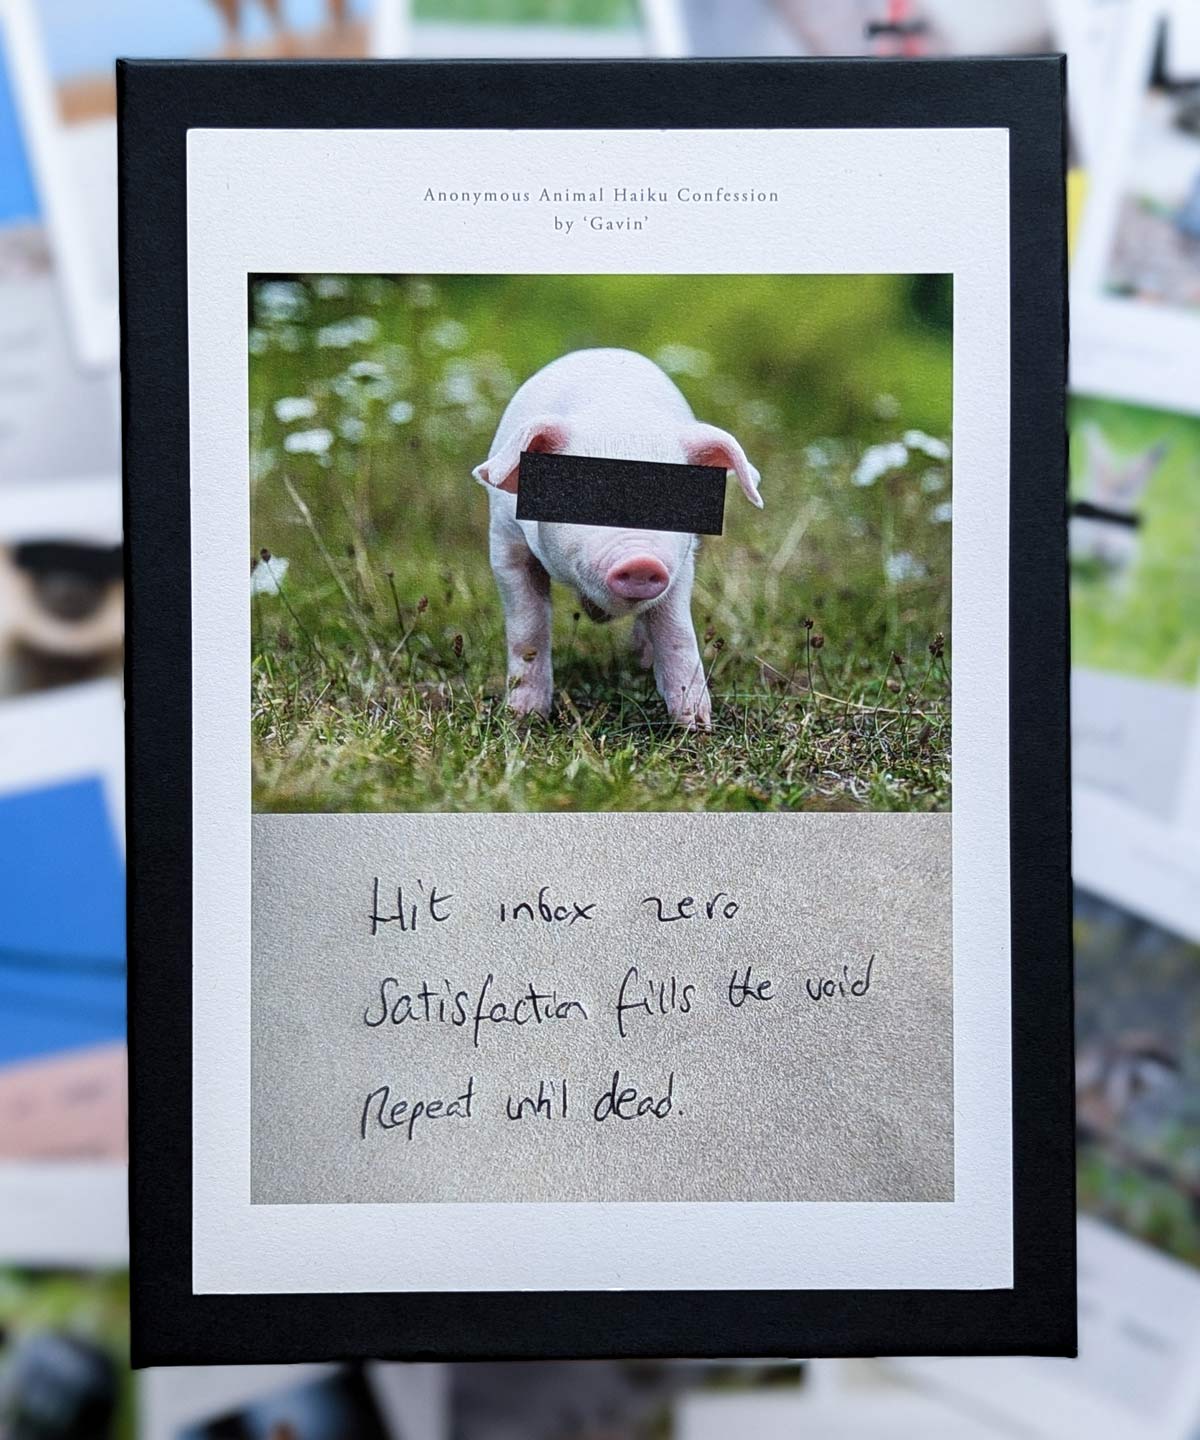 Anonymous Animal Haiku Confession
by ‘Gavin’
Hit inbox zero
Satisfaction fills the void
Repeat until dead.